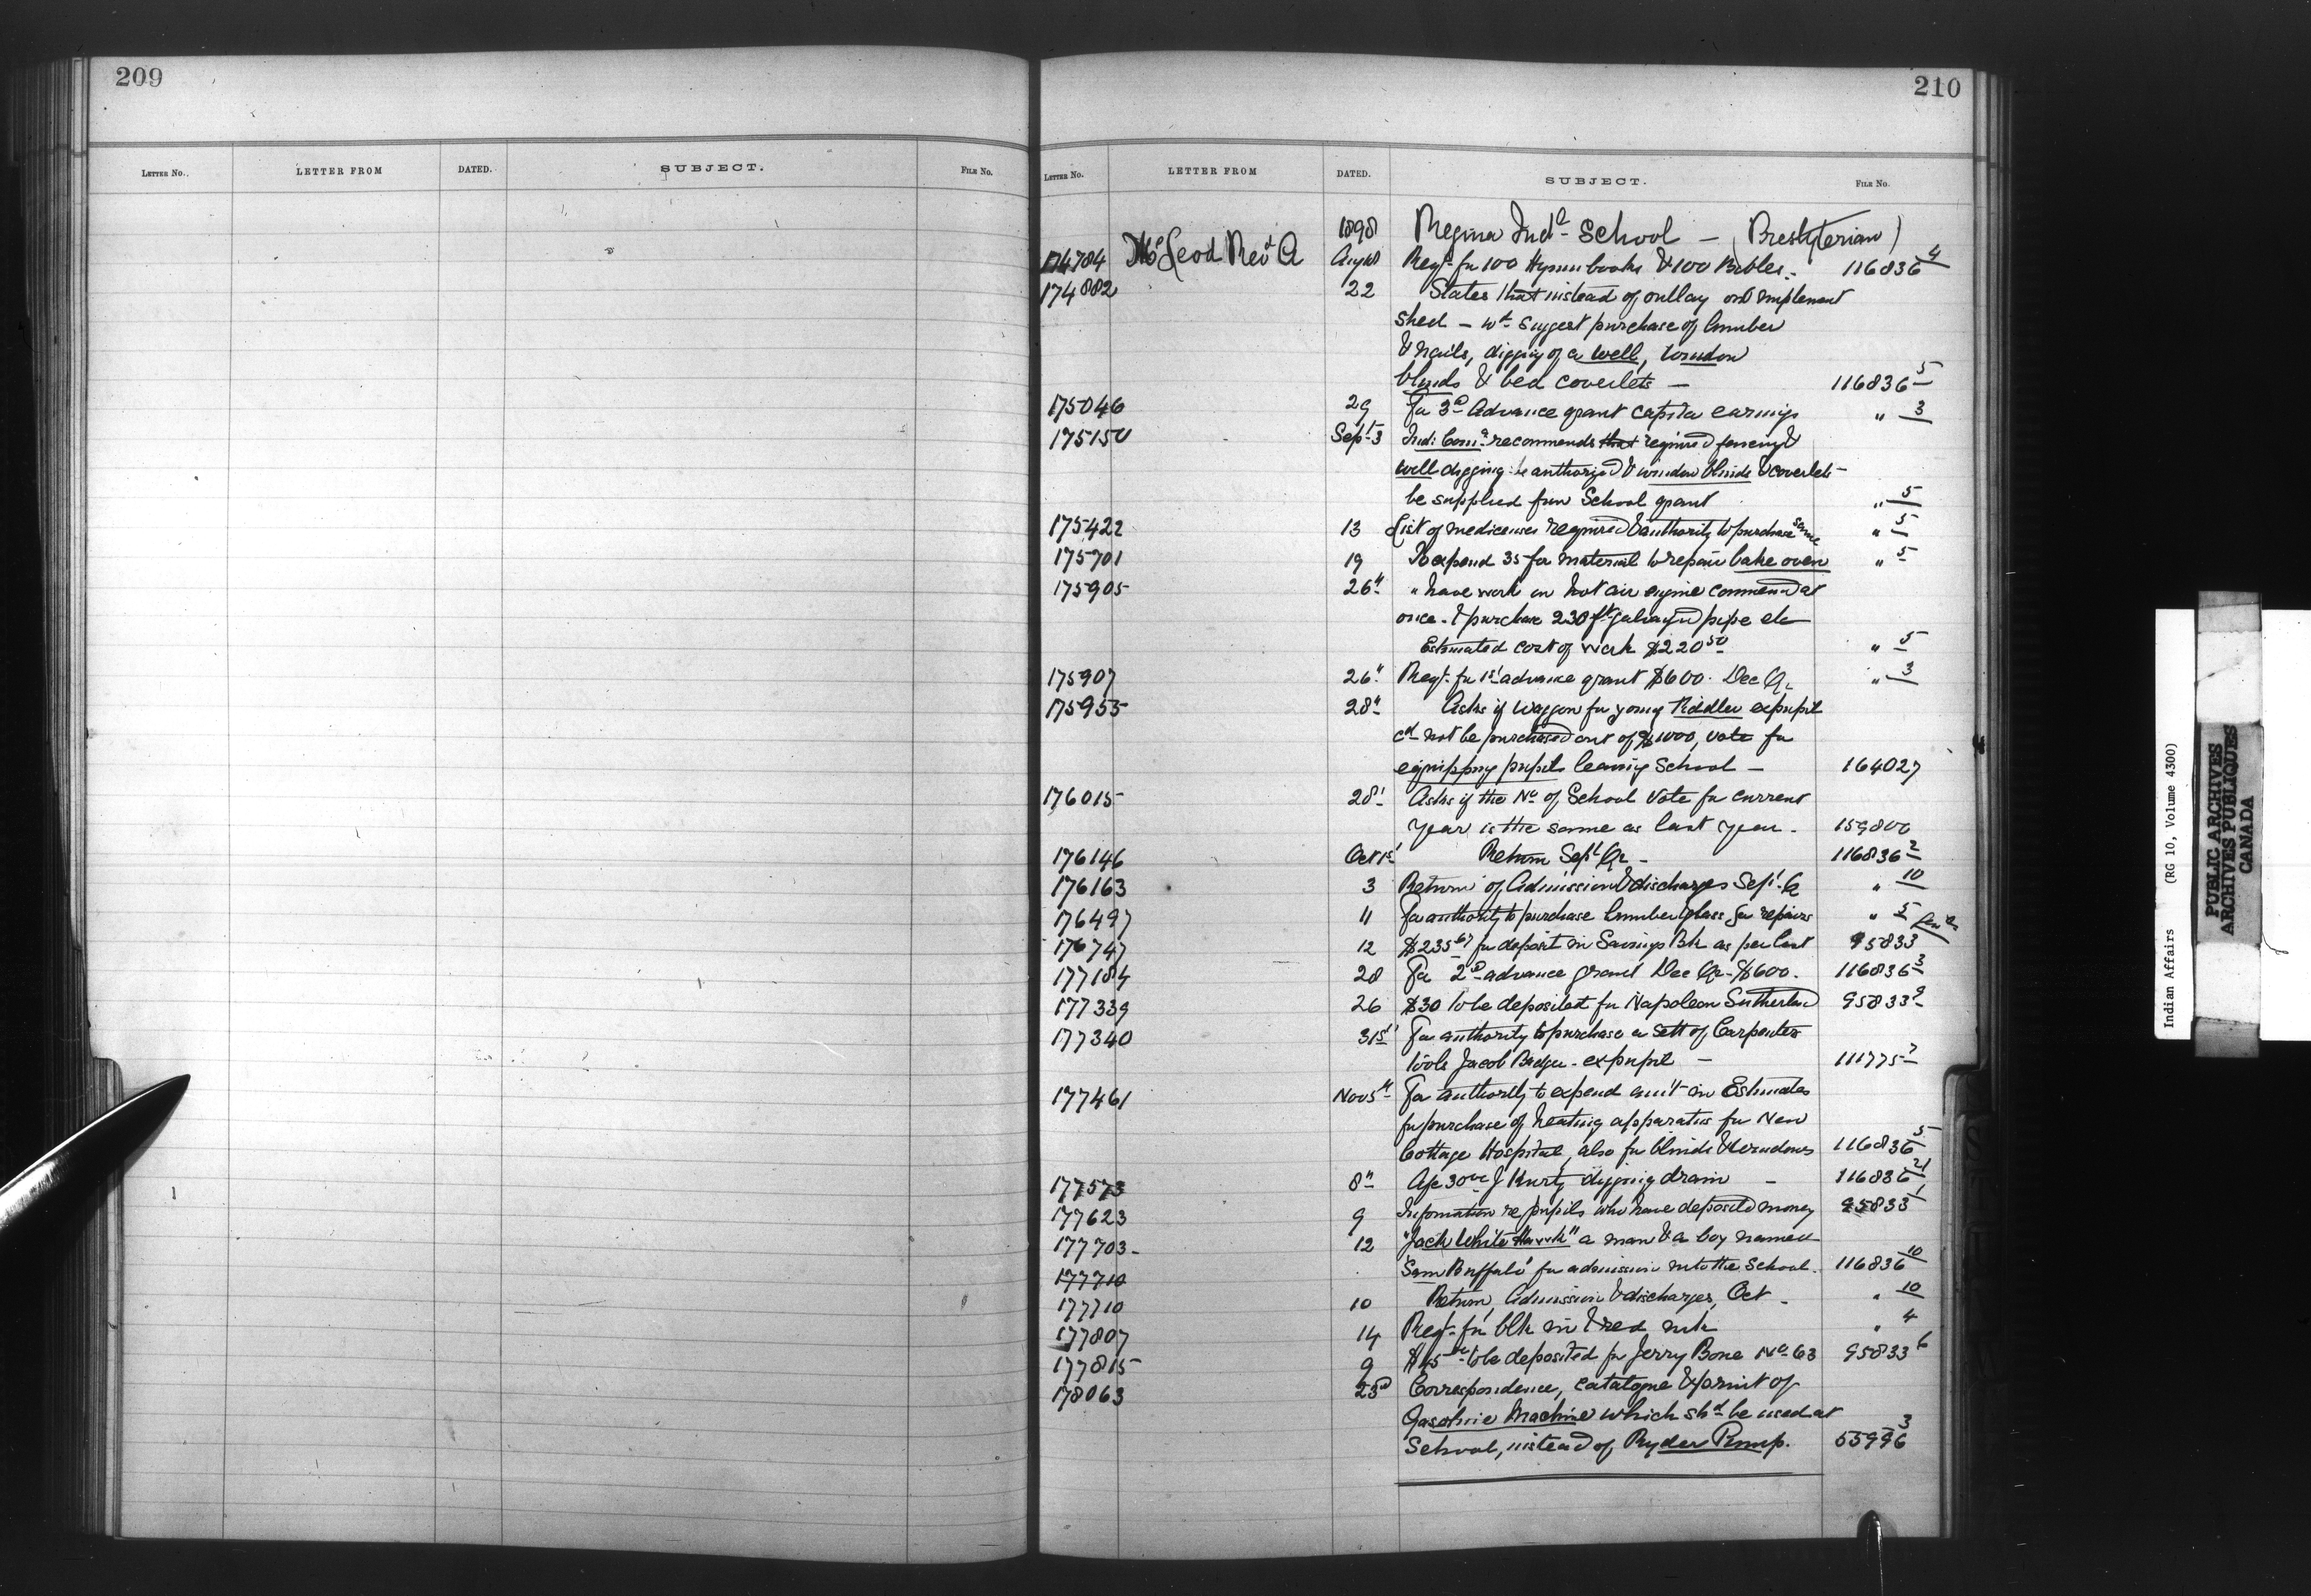 209
LETTER No. LETTER FROM DATED. SUBJECT. FILE No.
210
LETTER No. LETTER FROM DATED. SUBJECT. FILE No.
1898 Regina Indl School — (Presbyterian)
174784 McLeod Revd A Aug 18 Reqt fr 100 Hymn books & 100 Bibles. 116836 4
174882 22 States that instead of outlay on implement
shed — wd suggest purchase of lumber
& nails, digging of a well, window
blinds & bed coverlets — 116836 5
175046 29 For 3d Advance grant capita earnings " 3
175150 Sept 3 Ind: Comr recommends that required fencing &
well digging be authorized & window blinds & coverlets
be supplied from School grant " 5
175422 13 List of medicines required & authority to purchase same " 5
175701 19 To expend 35 for material to repair bake oven " 5
175905 26" " have work on hot air engine commenced at
once. & purchase 230 ft galvanized pipe etc
Estimated cost of work $220 50 " 5
175907 26" Reqt fr 1st advance grant $600. Dec Qr " 3
175955 28" Asks if waggon for young Riddler expupil
cd not be purchased out of $1000, vote for
equipping pupils leaving School — 164027
176015 28' Asks if the No of School Vote for current
year is the same as last year. 159800
176146 Oct 1st Return Sept Qr — 116836 2
176163 3 Return of Admission & discharges Sept Q " 10
176497 11 For authority to purchase lumber glass for repairs " 5
176747 12 $235 67 for deposit in Savings Bk as per list 95833
177184 28 For 2d advance grant Dec Qr $600. 116836 3
177339 26 $30 to be deposited for Napoleon Sutherland 95833 9
177340 31st For authority to purchase a Sett of Carpenters
tools Jacob Badger - expupil — 111775 7
177461 Nov 5" For authority to expend amt in Estimates
for purchase of heating apparatus for New
Cottage Hospital, also for blinds & windows 116836 5
177573 8" J Kurtz digging drain — 116836 21
177623 9 Information re pupils who have deposited money 95833 1
177703 - 12 "Jack White Hawk" a man & a boy named
177710 "Sam Buffalo" for admission into the School. 116836 10
177710 10 Return, Admission & discharges, Oct - " 10
177807 14 Reqt for blk ink & red ink " 4
177815 9 $45 to be deposited for Jerry Bone No 63 95833 6
178063 23d Correspondence, catalogue & print of
Gasoline Machine which shd be used at
School, instead of Ryder Pump. 55996 3
Indian Affairs (RG 10, Volume 4300)
PUBLIC ARCHIVES
ARCHIVES PUBLIQUES
CANADA